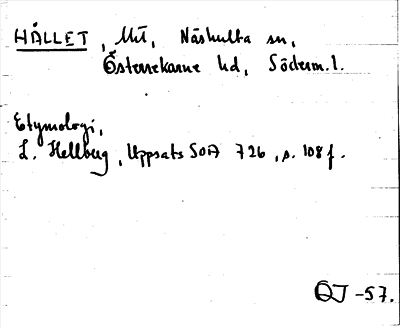 HÅLLET, Mt, Näshulta sn,
Österrekarne hd, Söderm. l.
Etymologi,
L. Hellberg, Uppsats SOA 726, s. 108 f.
OJ -57.